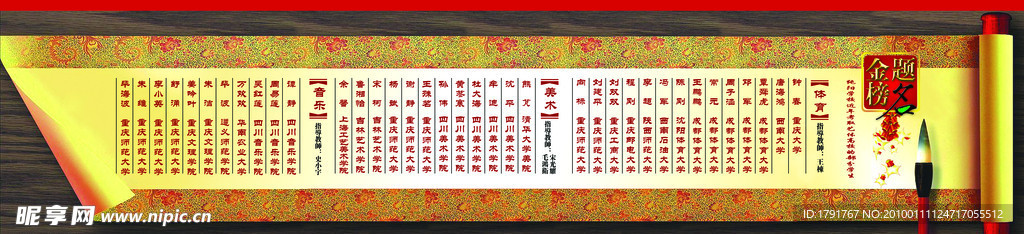 金榜题名
【体育】指導教師：王棟
钟春 重庆大学
唐海鸿 西南大学
覃舜虎 成都体育大学
邓军 成都体育大学
周子涵 成都体育大学
常元 成都体育大学
王鹏鹏 成都体育大学
陈刚 沈阳体育大学
冯军 西南石油大学
程刚 重庆邮电大学
李超 陕西师范大学
刘欢 重庆工商大学
刘建平 重庆师范大学
向栋 重庆师范大学
【美术】指導教師：宋光耀 毛鴻衛
熊芃 清华大学美院
沈平 四川美术学院
牟迪 四川美术学院
杜大海 四川美术学院
黄荷寰 四川美术学院
孙伟 四川美术学院
王殊茗 重庆师范大学
谢静 重庆师范大学
杨斌 重庆师范大学
宋柯 吉林艺术学院
鲁湘怡 吉林艺术学院
余馨 上海工艺美术学院
【音乐】指導教師：史小宇
谭静 四川音乐学院
周莲 四川音乐学院
吴红莲 四川音乐学院
万双双 华南农业大学
毕波 遵义师范大学
朱洁 重庆师范大学
姜玲叶 重庆文理学院
舒涌 重庆师范大学
廖小英 重庆师范大学
朱雄 重庆师范大学
毕海波 重庆师范大学
昵享网 www.nipic.cn
ID:1791767 NO:20100111124717055512